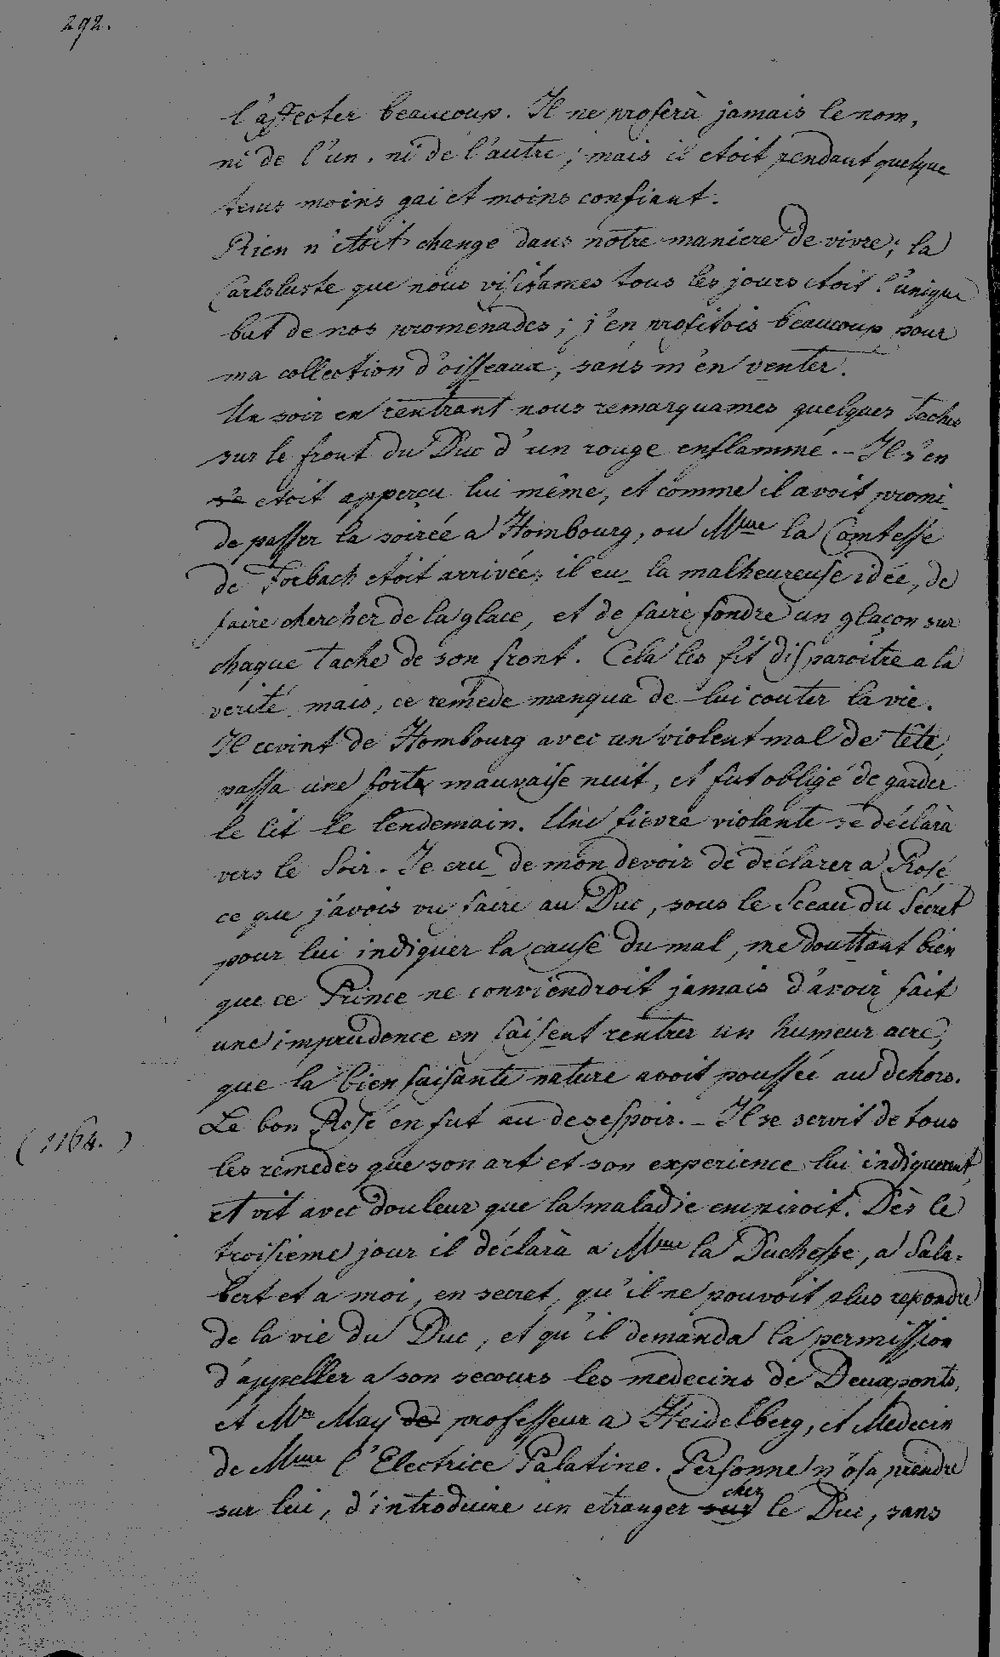 292.
l'affecter beaucoup. Il ne proferà jamais le nom,
ni de l'un, ni de l'autre; mais il etoit pendant quelque
tems moins gai et moins confiant.
Rien n'etoit change dans notre maniere de vivre; la
Carlsluste que nous visitames tous les jours etoit l'unique
but de nos promenades; j'en profitois beaucoup pour
ma collection d'oisseaux, sans m'en venter.
Un soir en rentrant nous remarquames quelques taches
sur le front du Duc d'un rouge enflammé. - Il s'en
s'e etoit apperçu lui même, et comme il avoit promi
de passer la soirée a Hombourg, ou Mme la Comtesse
de Forbach etoit arrivée; il eu la malheureuse idée, de
faire chercher de la glace, et de faire fondre un glaçon sur
chaque tache de son front. Cela les fit disparoitre a la
verité, mais, ce remede manqua de lui couter la vie.
Il revint de Hombourg avec un violent mal de tête,
passa une forte mauvaise nuit, et fut obligé de garder
le lit le lendemain. Une fievre violante se déclarà
vers le soir. Je cru de mon devoir de déclarer a Rosé
ce que j'avois vu faire au Duc, sous le Sceau du Secret
pour lui indiquer la cause du mal, me douttant bien
que ce Prince ne conviendroit jamais d'avoir fait
une imprudence en faisent rentrer un humeur acre,
que la bien faisante nature avoit poussée au dehors.
Le bon Rosé en fut au desespoir. - Il se servit de tous
(1164.)
les remedes que son art et son experience lui indiquerent,
et vit avec douleur que la maladie empiroit. Dès le
troisieme jour il déclarà a Mme la Duchesse, a Sala-
bert et a moi, en secret, qu'il ne pouvoit plus repondre
de la vie du Duc, et qu'il demanda la permission
d'appeller a son secours les medecins de Deuxponts,
et Mr May de professeur a Heidelberg, et Medecin
de Mme l'Electrice Palatine. Personne n'osa prendre
sur lui, d'introduire un etranger sur chez le Duc, sans